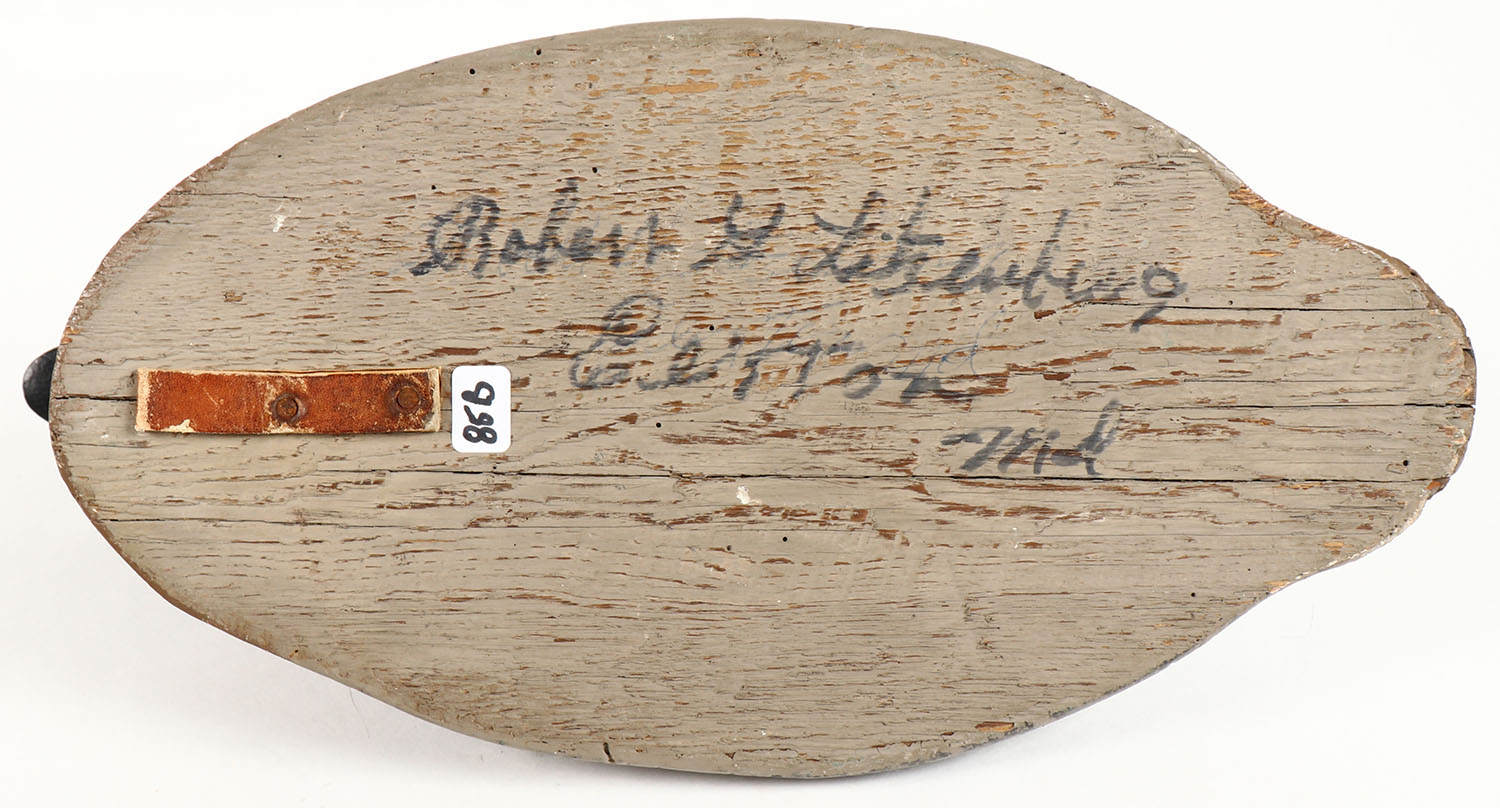 Robert G Litzenberg
Elkton
Md
85B